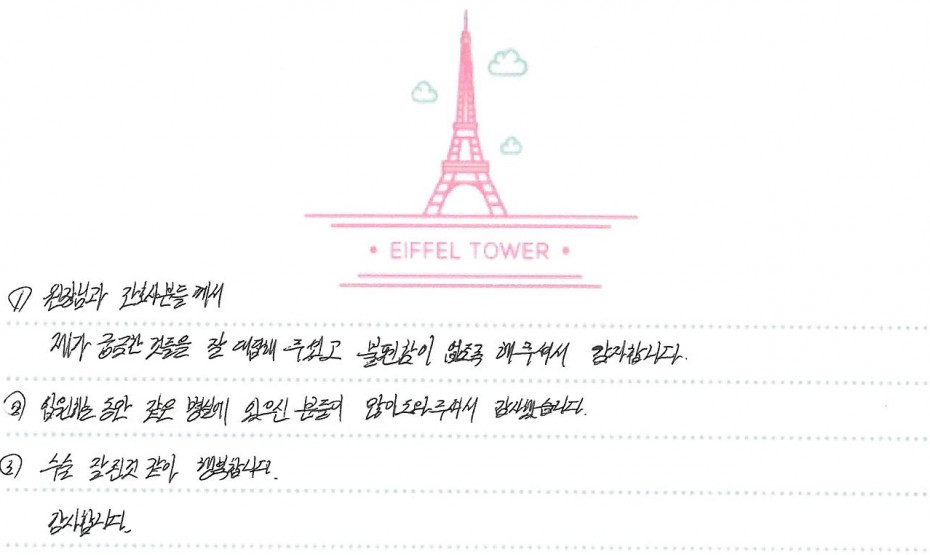 • EIFFEL TOWER •
① 원장님과 간호사분들께서
제가 궁금한 것들을 잘 해주셨고 불편함이 없도록 해주셔서 감사합니다.
② 입원하는 동안 같은 병실에 있으신 분들이 많이 도와주셔서 감사했습니다.
③ 수술 잘 된것 같아 행복합니다.
감사합니다.